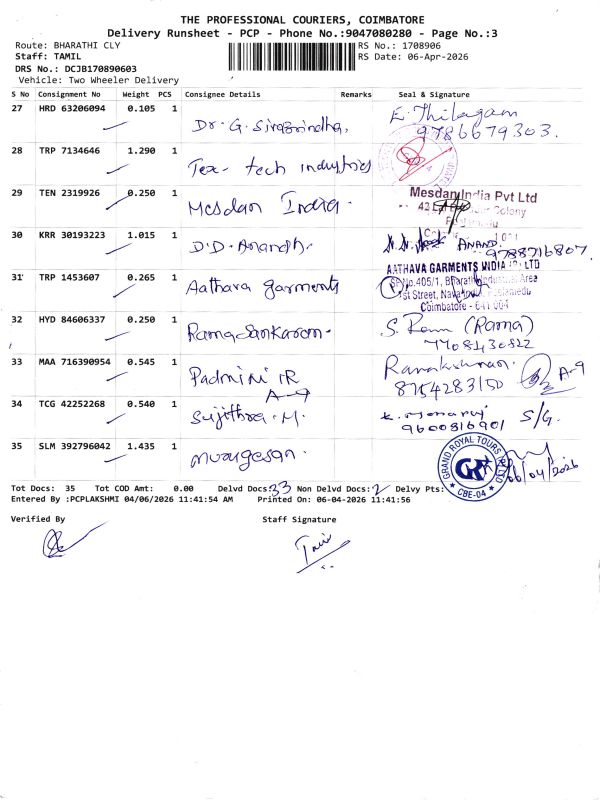 THE PROFESSIONAL COURIERS, COIMBATORE
Delivery Runsheet - PCP - Phone No.:9047080280 - Page No.:3
Route: BHARATHI CLY
RS No.: 1708906
Staff: TAMIL
RS Date: 06-Apr-2026
DRS No.: DCJB170890603
Vehicle: Two Wheeler Delivery
S No Consignment No Weight PCS Consignee Details Remarks Seal & Signature
27 HRD 63206094 0.105 1 Dr. G. E. Thilagam
9786679303.
28 TRP 7134646 1.290 1 Tex-tech industries
29 TEN 2319926 0.250 1 Mesdan India.
Mesdan India Pvt Ltd
Colony
30 KRR 30193223 1.015 1 D.D. Anandh. ANAND.
9788716807.
31 TRP 1453607 0.265 1 Aathava garments
AATHAVA GARMENTS INDIA (P) LTD
SF No.405/1, Bharathi Industrial Area
1st Street, Nava India, Peelamedu
Coimbatore - 641 004
32 HYD 84606337 0.250 1 Ramasankaran. S. Ram (Rama)
7708430522
33 MAA 716390954 0.545 1 Padmini R Ramakshnan.
A-9 8754283150 A-9
34 TCG 42252268 0.540 1 Sujithra.M. K. Manaruj S/G.
9600816901
35 SLM 392796042 1.435 1 murugesan.
GRAND ROYAL TOURS
GR
CBE-04
06/04/2026
Tot Docs: 35 Tot COD Amt: 0.00 Delvd Docs: 33 Non Delvd Docs: 2 Delvy Pts:
Entered By :PCPLAKSHMI 04/06/2026 11:41:54 AM Printed On: 06-04-2026 11:41:56
Verified By Staff Signature